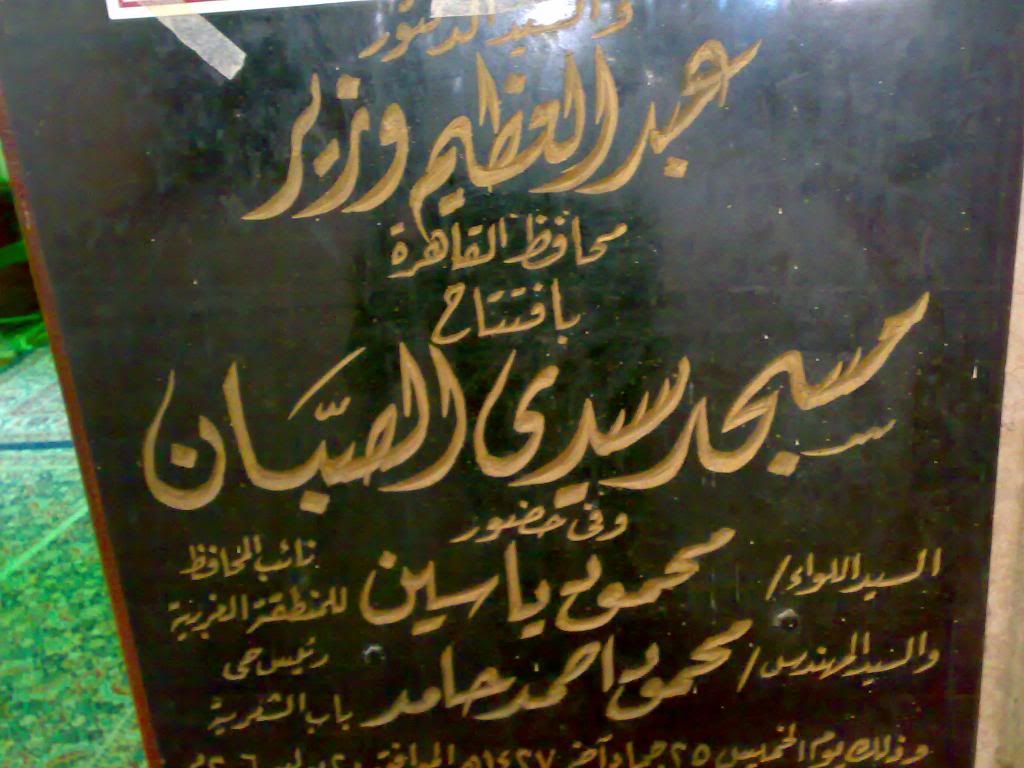 والسيد الدكتور
عبد العظيم وزير
محافظ القاهرة
بافتتاح
مسجد سيدى الصبَّان
وفى حضور
السيد اللواء/ محمود ياسين نائب المحافظ للمنطقة الغربية
والسيد المهندس/ محمود احمد حامد رئيس حى باب الشعرية
وذلك يوم الخميس ٢٥ جماد آخر ١٤٢٧هـ الموافق